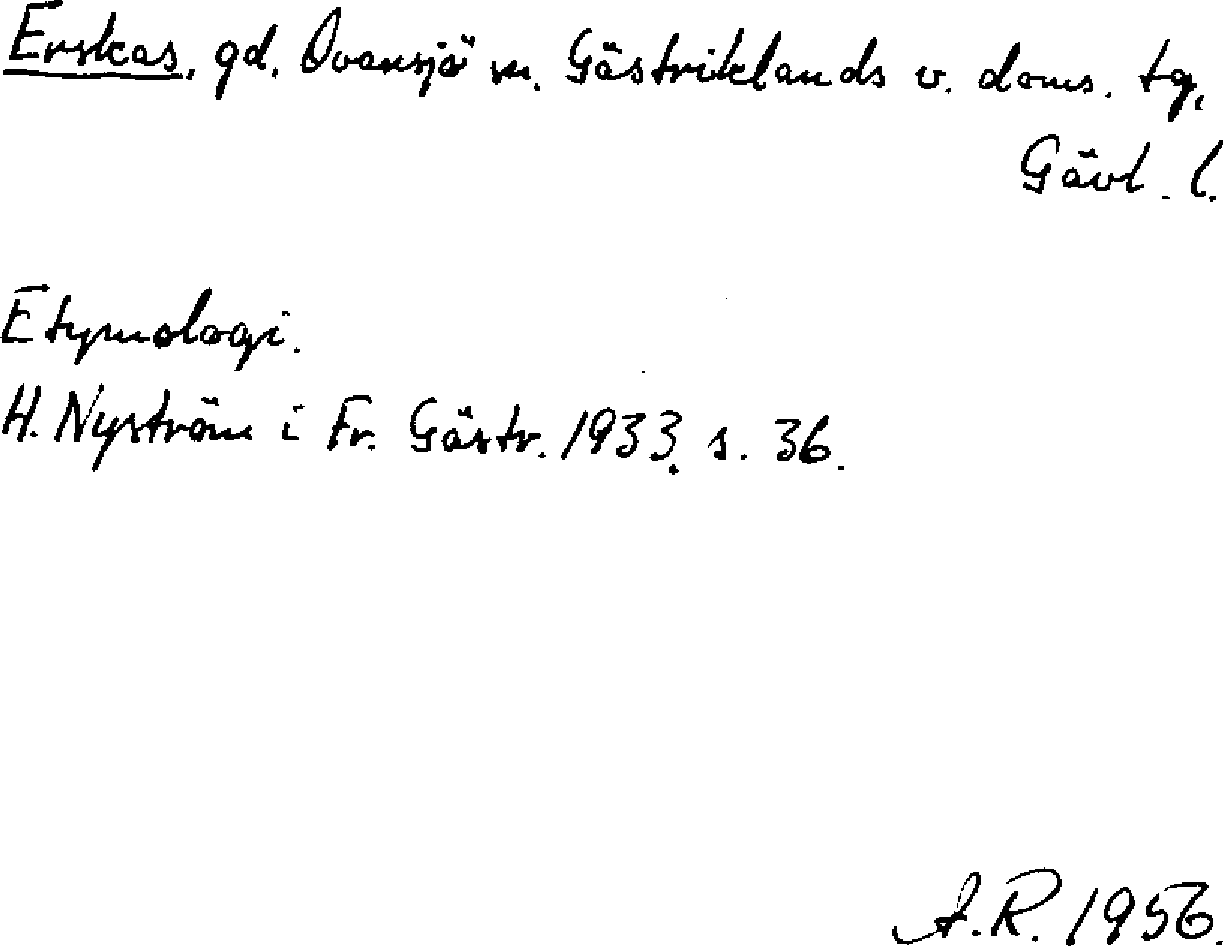 Erskas, gd, Ovansjö sn. Gästriklands v. doms. tg,
Gävl. l.
Etymologi.
H. Nyström i Fr. Gästr. 1933, s. 36.
A.R. 1956.